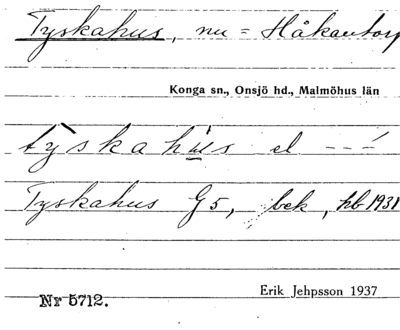 Tyskahus, nu = Håkantorp
Konga sn., Onsjö hd., Malmöhus län
tỳskahu̲s el - - ´
Tyskahus G5, bek, hb 1931
Erik Jehpsson 1937
Nr 5712.